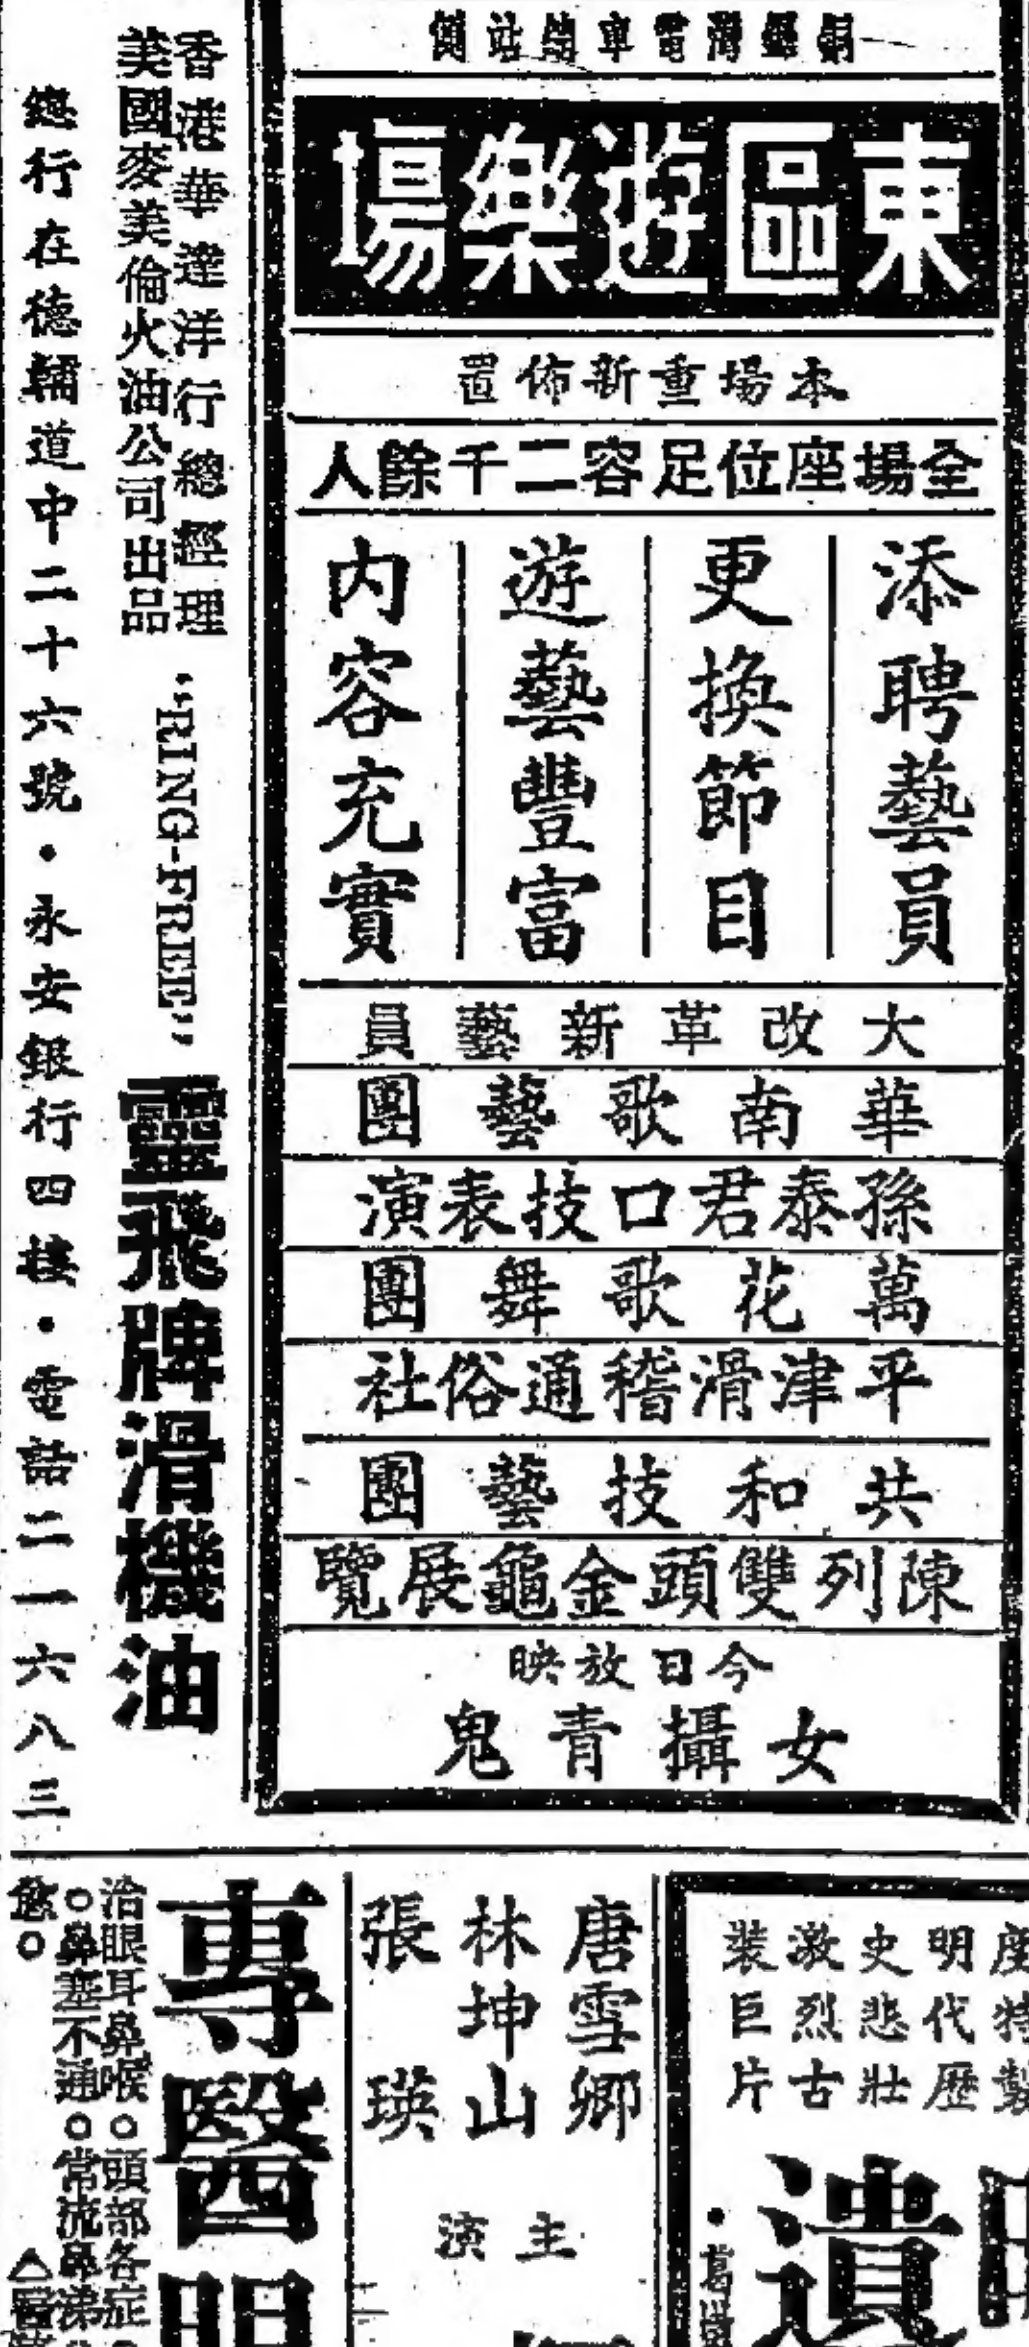 銅鑼灣電車總站側
東區遊樂場
本場重新佈置
全場座位足容二千餘人
添聘藝員
更換節目
遊藝豐富
內容充實
大改革新藝員
華南歌藝團
孫泰君口技表演
萬花歌舞團
平津滑稽通俗社
共和技藝團
陳列雙頭金龜展覽
今日放映
女攝青鬼
香港華達洋行總經理
美國麥美倫火油公司出品
“RING-FREE”
靈飛牌滑機油
總行在德輔道中二十六號・永安銀行四樓・電話二一六八三
座特製
明代歷
史悲壯
激烈古
裝巨片
遺
唐雪卿
林坤山
張瑛
主演
專醫眼
治眼耳鼻喉○頭部各症○
○鼻塞不通○常流鼻涕